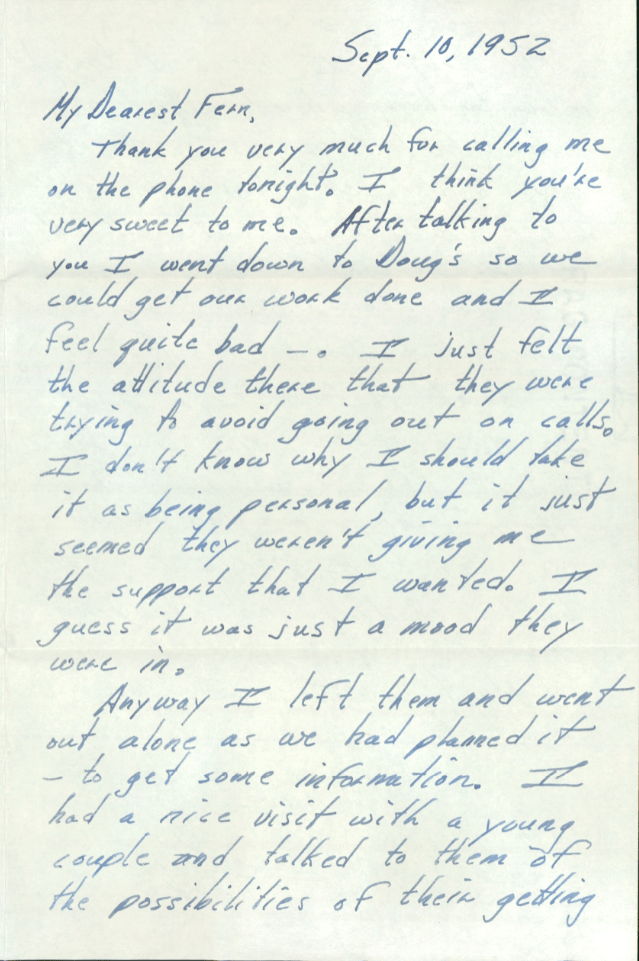 Sept. 10, 1952
My Dearest Fern,
Thank you very much for calling me
on the phone tonight. I think you're
very sweet to me. After talking to
you I went down to Doug's so we
could get our work done and I
feel quite bad —. I just felt
the attitude there that they were
trying to avoid going out on calls.
I don't know why I should take
it as being personal, but it just
seemed they weren't giving me
the support that I wanted. I
guess it was just a mood they
were in.
Anyway I left them and went
out alone as we had planned it
— to get some information. I
had a nice visit with a young
couple and talked to them of
the possibilities of their getting